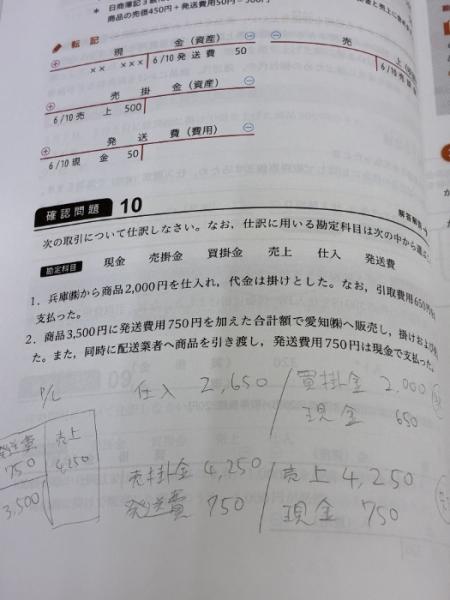 ＊ 日商簿記3級
商品の売価450円＋発送費用50円＝500円
転 記
現 金（資産）
×× ××× 6/10 発送費 50
売 上
6/10 売
売 掛 金（資産）
6/10 売 上 500
発 送 費（費用）
6/10 現 金 50
確認問題 10
解答解説
次の取引について仕訳しなさい。なお、仕訳に用いる勘定科目は次の中から選ぶ
勘定科目 現金 売掛金 買掛金 売上 仕入 発送費
1．兵庫㈱から商品2,000円を仕入れ、代金は掛けとした。なお、引取費用650円
支払った。
2．商品3,500円に発送費用750円を加えた合計額で愛知㈱へ販売し、掛け
た。また、同時に配送業者へ商品を引き渡し、発送費用750円は現金で支払った。
P/L 仕入 2,650 / 買掛金 2,000
現金 650
発送費 750 売上 4,250
3,500
売掛金 4,250 / 売上 4,250
発送費 750 現金 750